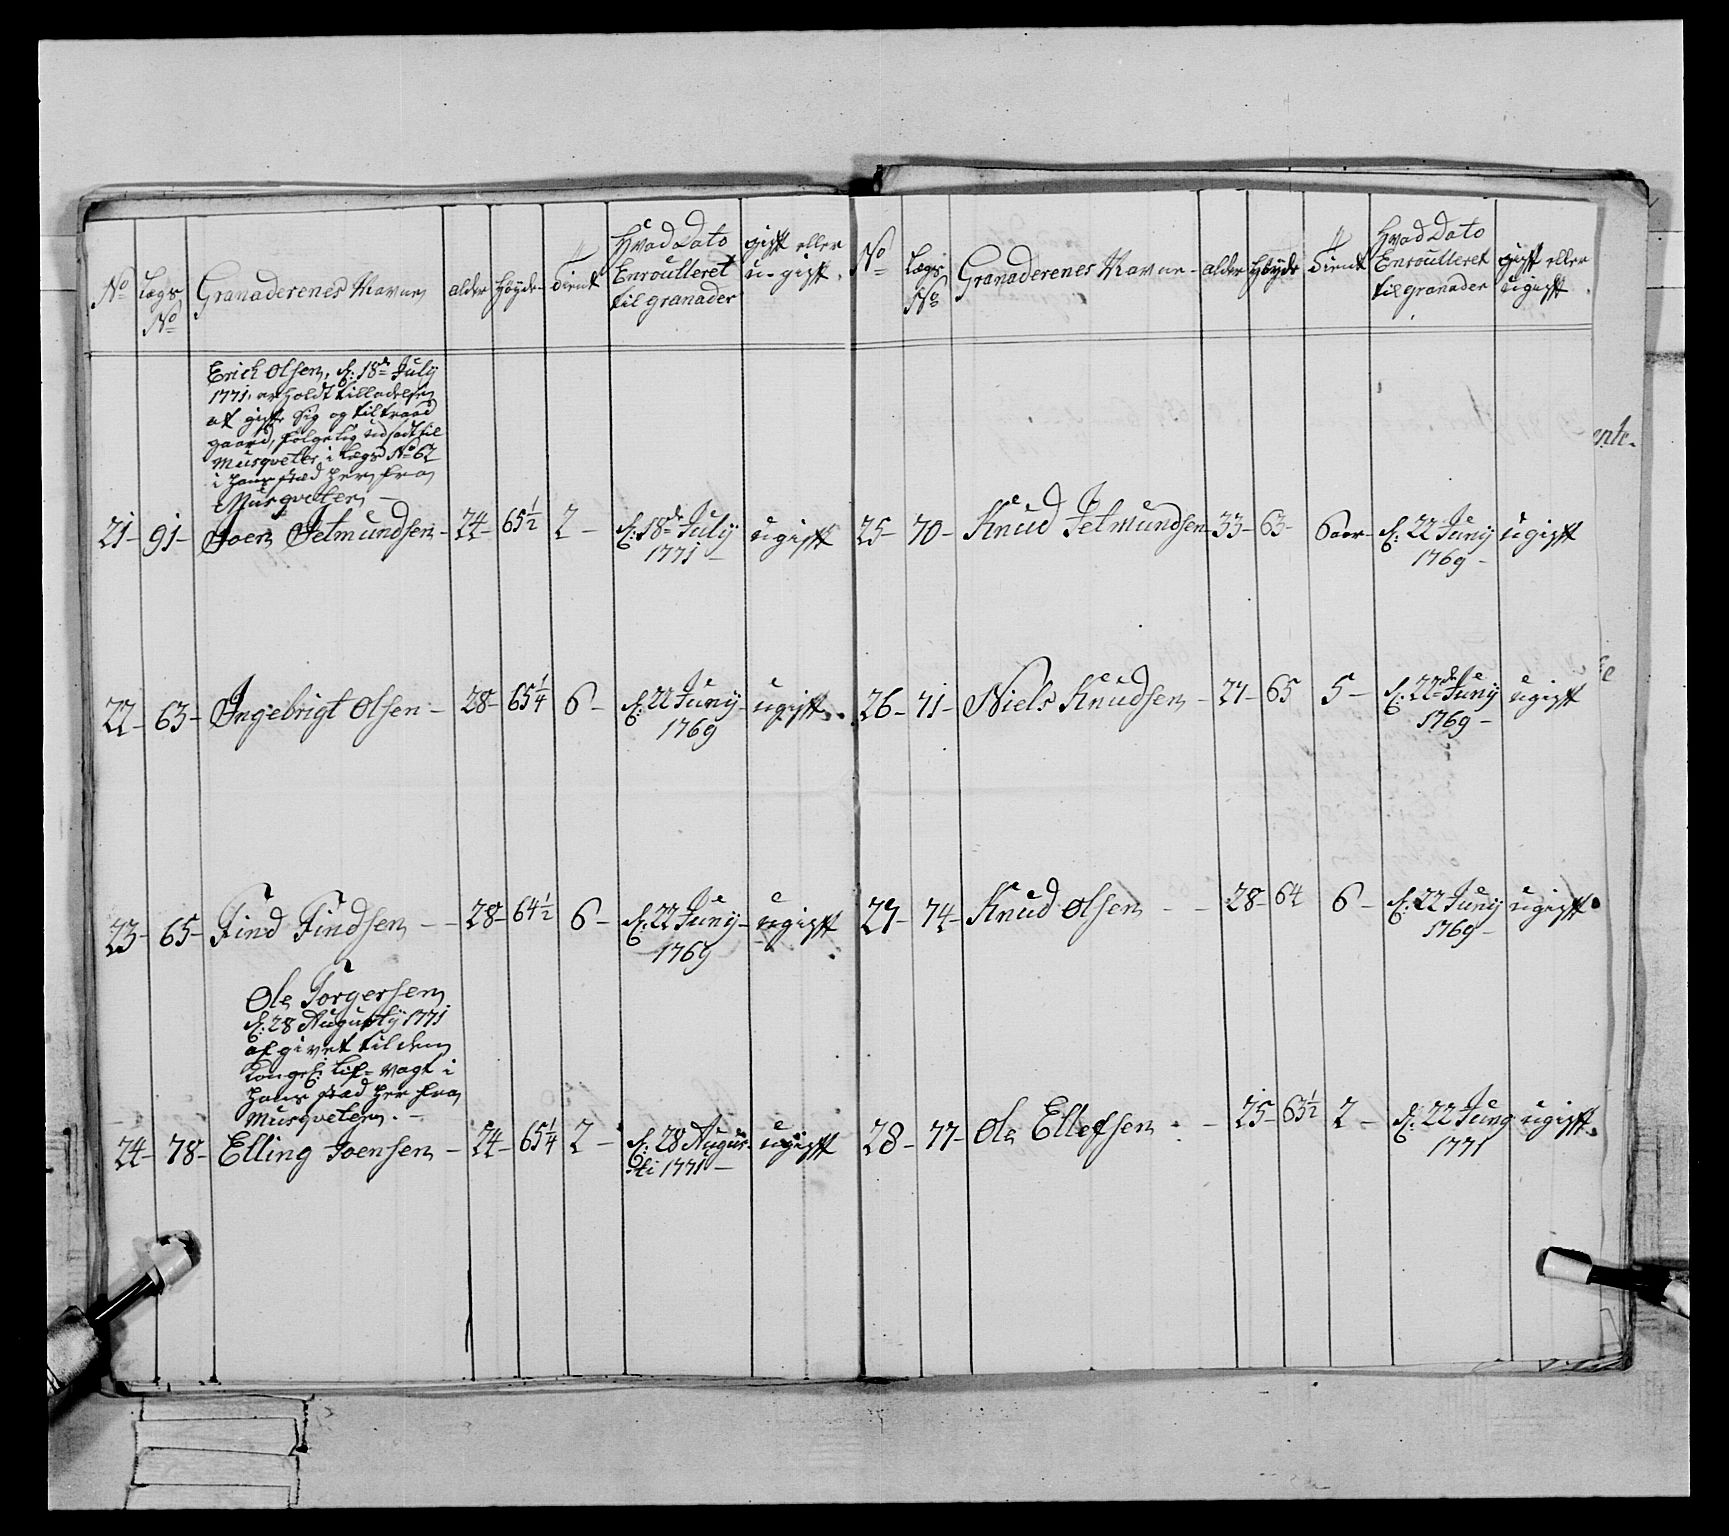 No
Lægs No
Granaderenes Navne
alder
Høyde
tient
Hvad Dato Enroulleret til granader
gift eller u-gift.
Erich Olsen, d: 18de July
1771, erholdt tilladelse
at gifte sig og tiltraad
gaard, følgelig udsadt til
Musqveter i Lægd No 62
i hans stæd her fra
Musqveten
21- 91- Joen Jetmundsen- 24- 65½ 2- d: 18de July 1771- ugift
22- 63- Ingebrigt Olsen- 28- 65¼ 6- d: 22 Juny 1769 ugift.
23- 65- Find Findsen - - 28- 64½ 6- d: 22 Juny- 1769 ugift
Ole Torgersen
d: 28 Augusty 1771
af givet til den
Kongel: Lif-Vagt i
hans stæd her fra
Musqveten. -
24- 78- Elling Joensen- 24- 65¼ 2- d: 28 Augusti 1771- ugift
No
Lægs No
Granaderenes Navne-
alder
Høyde
tient
Hvad Dato Enroulleret til granader
gift eller ugift.
25- 70- Knud Jetmundsen- 33- 63- 6 aar- d: 22 Juny 1769- ugift
26- 71- Niels Knudsen- 27- 65 5- d: 22de Juny 1769- ugift
27- 74- Knud Olsen - - 28- 64 6- d: 22 Juny 1769- ugift.
28- 77- Ole Ellefsen - - 25- 63½ 2- d: 22 Juny 1771 ugift.